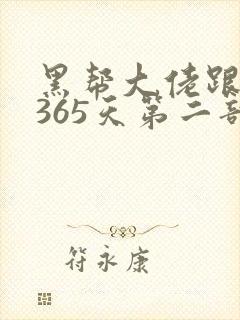 黑帮大佬跟
365天第二部
符永康